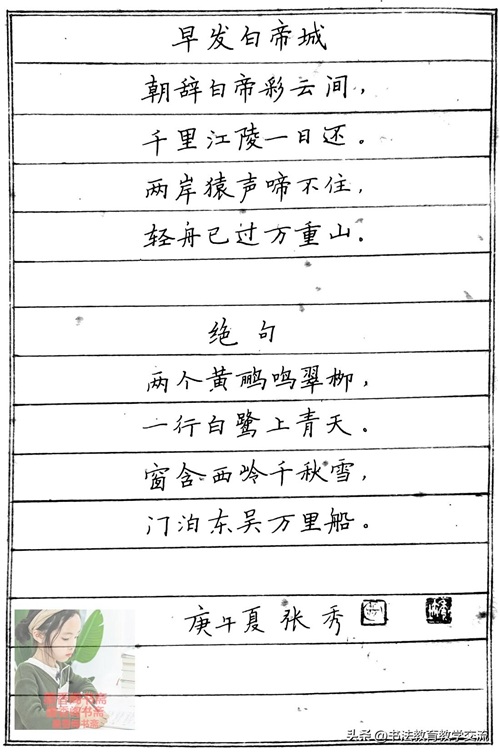 早发白帝城
朝辞白帝彩云间，
千里江陵一日还。
两岸猿声啼不住，
轻舟已过万重山。
绝句
两个黄鹂鸣翠柳，
一行白鹭上青天。
窗含西岭千秋雪，
门泊东吴万里船。
庚午夏 张秀
头条@书法教育教学交流